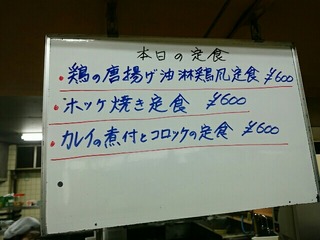 本日の定食
・鶏の唐揚げ油淋鶏風定食 ¥600
・ホッケ焼き定食 ¥600
・カレイの煮付とコロッケの定食 ¥600